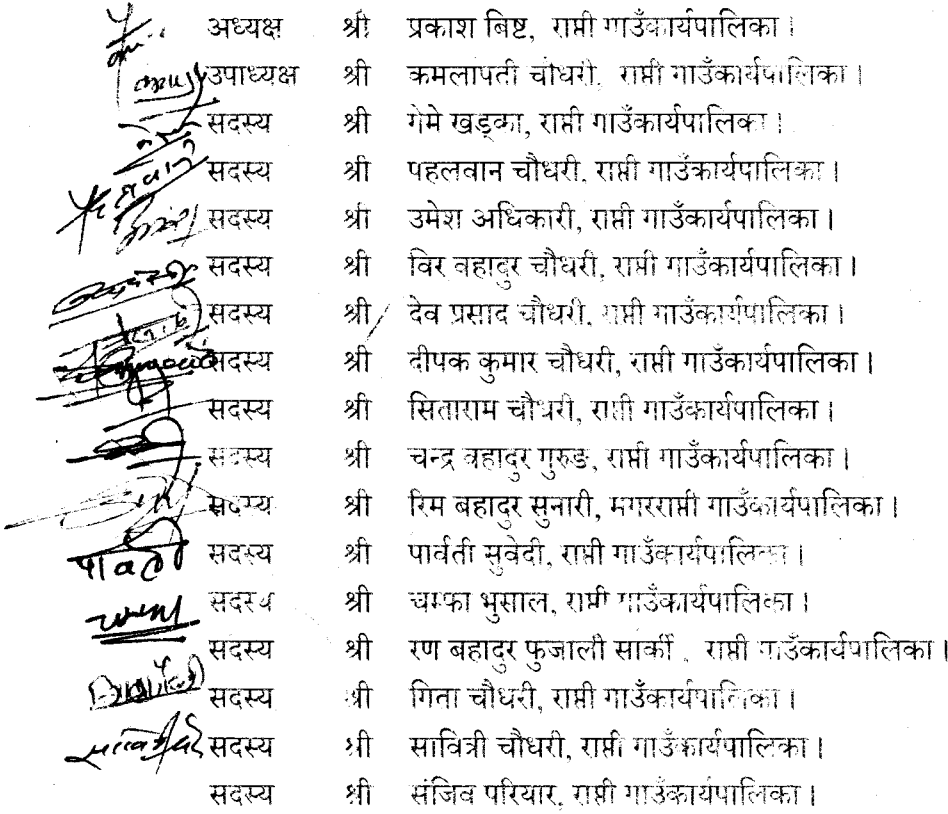 अध्यक्ष श्री प्रकाश बिष्ट, राप्ती गाउँकार्यपालिका ।
उपाध्यक्ष श्री कमलापती चौधरी, राप्ती गाउँकार्यपालिका ।
सदस्य श्री गेमे खड्का, राप्ती गाउँकार्यपालिका ।
सदस्य श्री पहलवान चौधरी, राप्ती गाउँकार्यपालिका ।
सदस्य श्री उमेश अधिकारी, राप्ती गाउँकार्यपालिका ।
सदस्य श्री विर वहादुर चौधरी, राप्ती गाउँकार्यपालिका ।
सदस्य श्री देव प्रसाद चौधरी, राप्ती गाउँकार्यपालिका ।
सदस्य श्री दीपक कुमार चौधरी, राप्ती गाउँकार्यपालिका ।
सदस्य श्री सिताराम चौधरी, राप्ती गाउँकार्यपालिका ।
सदस्य श्री चन्द्र वहादुर गुरुङ, राप्ती गाउँकार्यपालिका ।
सदस्य श्री रिम बहादुर सुनारी, मगरराप्ती गाउँकार्यपालिका ।
पार्वती सदस्य श्री पार्वती सुवेदी, राप्ती गाउँकार्यपालिका ।
सदस्य श्री चम्फा भुसाल, राप्ती गाउँकार्यपालिका ।
सदस्य श्री रण बहादुर फुजाली सार्की , राप्ती गाउँकार्यपालिका ।
सदस्य श्री गिता चौधरी, राप्ती गाउँकार्यपालिका ।
सदस्य श्री सावित्री चौधरी, राप्ती गाउँकार्यपालिका ।
सदस्य श्री संजिव परियार, राप्ती गाउँकार्यपालिका ।